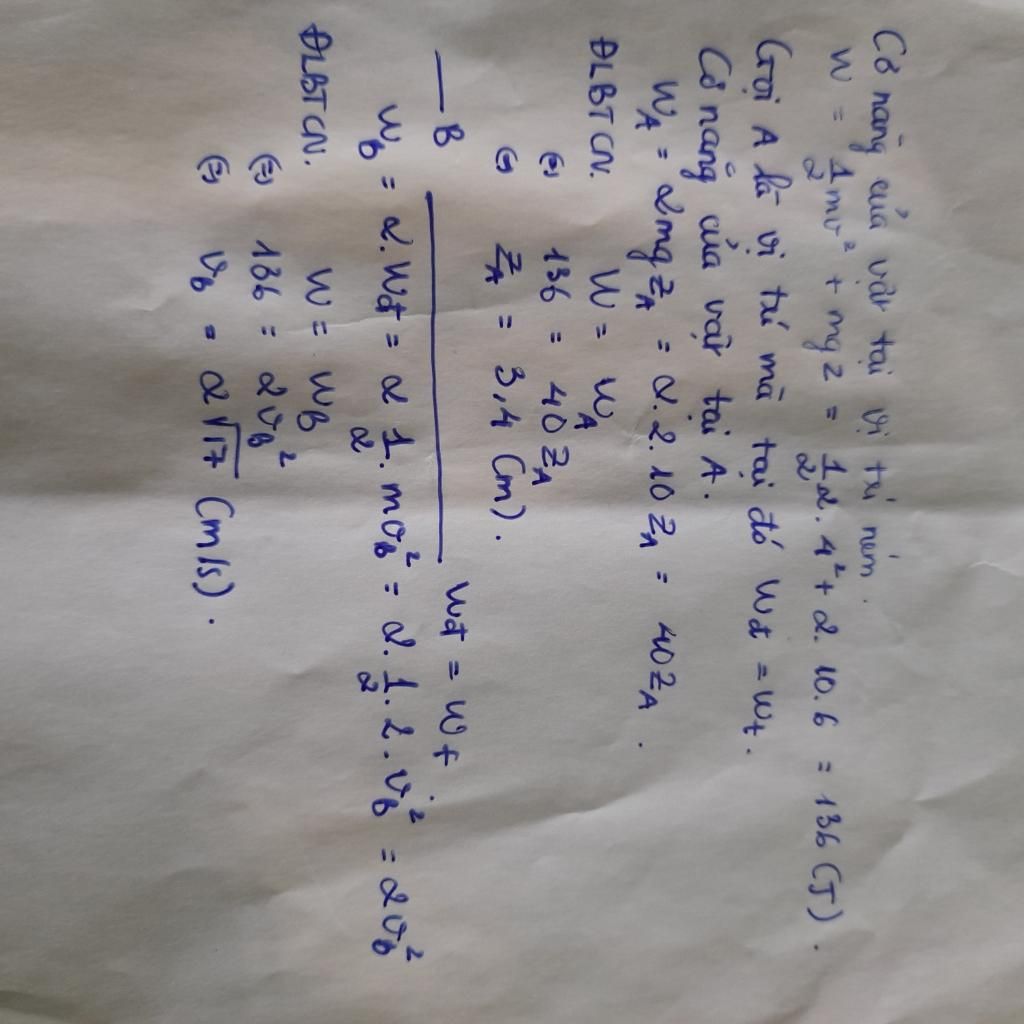 Cơ năng của vật tại vị trí ném.
W = 1/2 mv² + mgz = 1/2 2.4² + 2.10.6 = 136 (J).
Gọi A là vị trí mà tại đó Wđ = Wt.
Cơ năng của vật tại A.
W_A = 2mgz_A = 2.2.10 z_A = 40z_A.
ĐLBTCN. W = W_A
(=) 136 = 40 z_A
(=) z_A = 3,4 (m).
— B Wđ = Wt.
W_B = 2.Wđ = 2 1/2 . mv_B² = 2. 1/2 . 2. v_B² = 2v_B²
ĐLBTCN. W = W_B
(=) 136 = 2v_B²
(=) v_B = 2√17 (m/s).